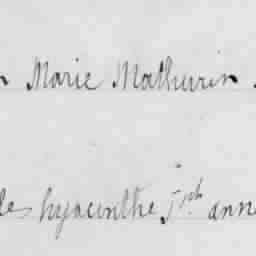 n Marie Mathurin
les hyacinthe Jph ann